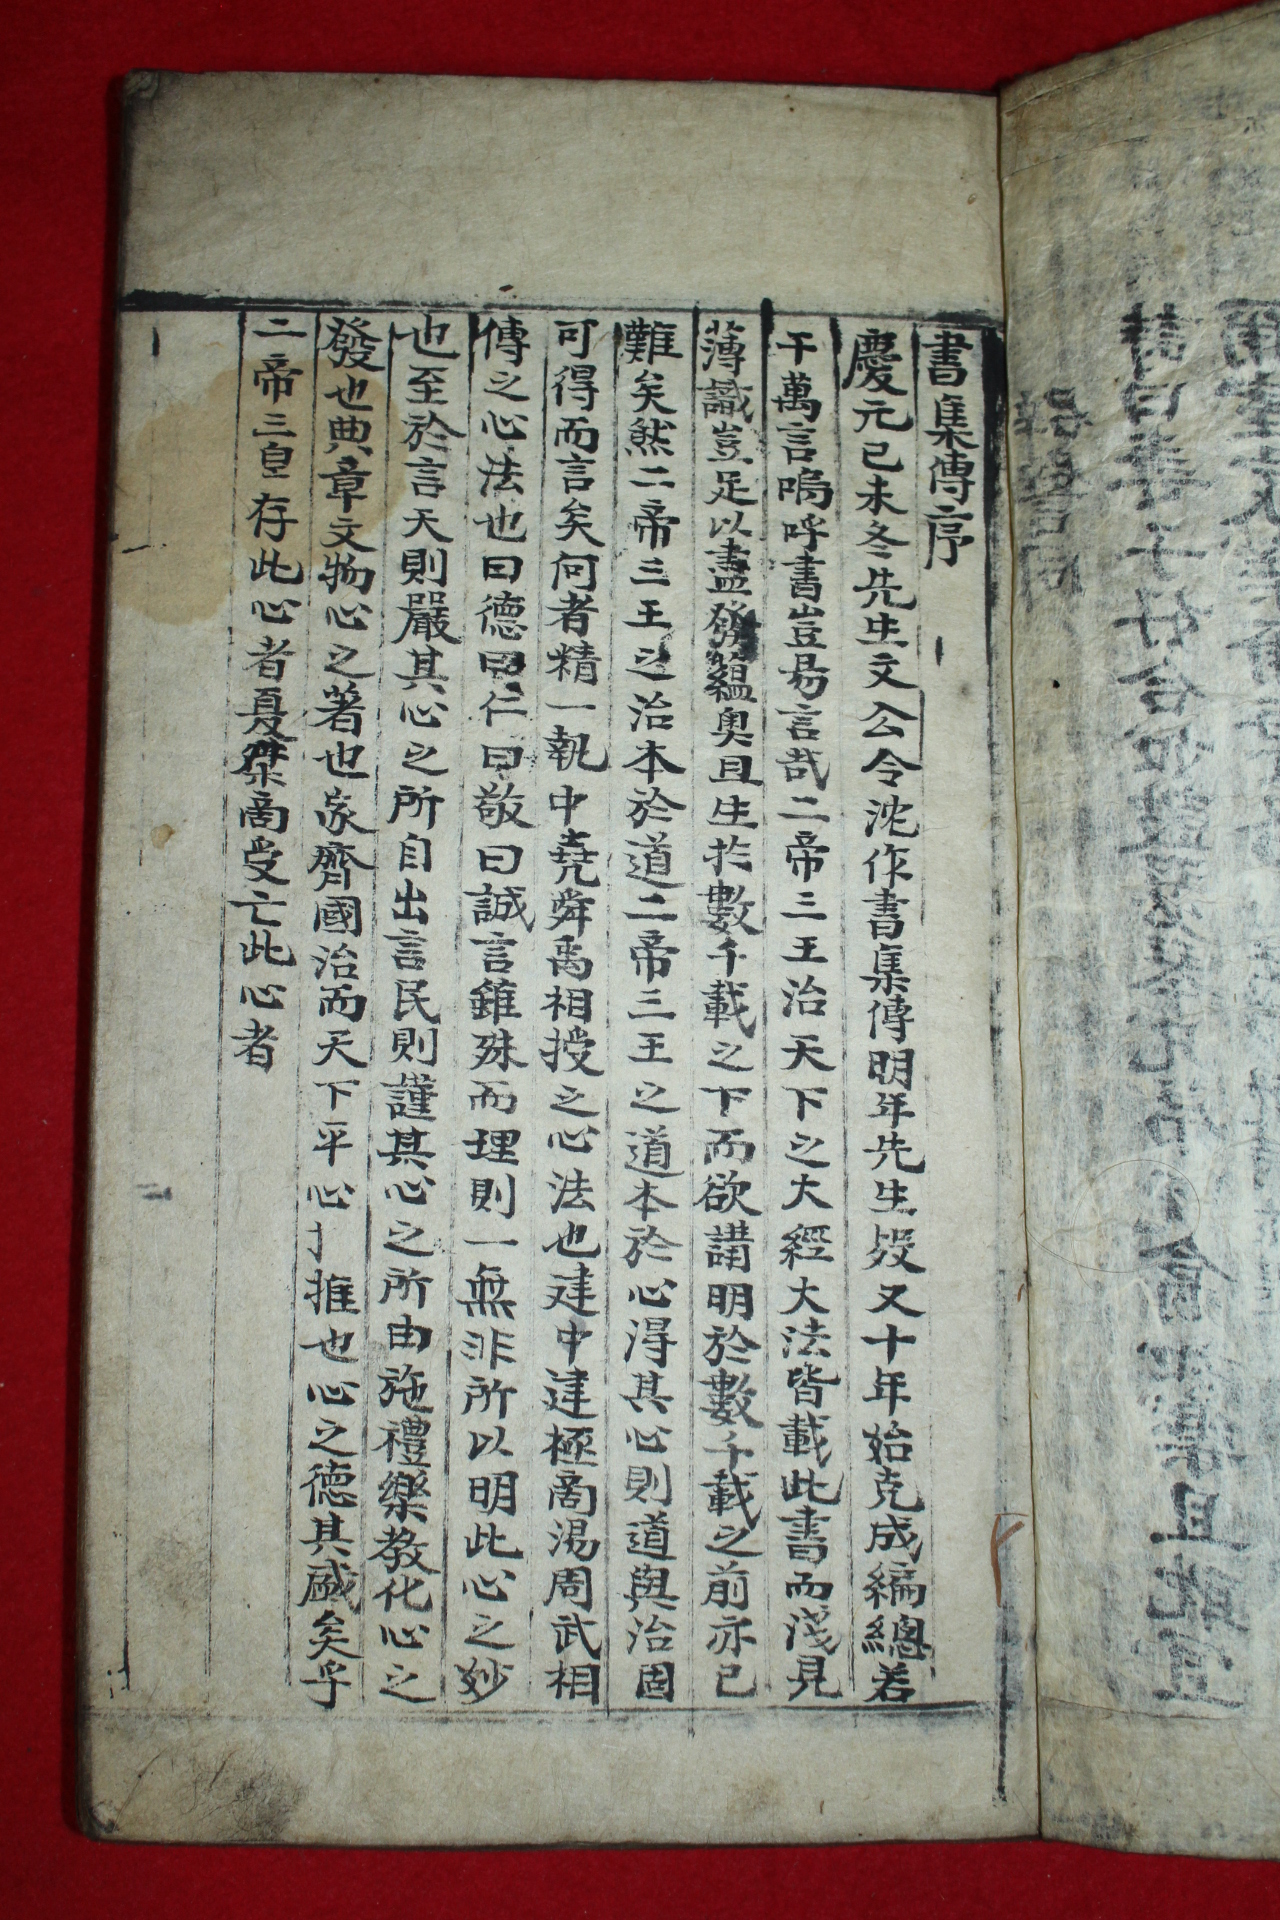 書集傳序
慶元已未冬先生文公令沈作書集傳明年先生歿又十年始克成編總若
干萬言嗚呼書豈易言哉二帝三王治天下之大經大法皆載此書而淺見
薄識豈足以盡發蘊奧且生於數千載之下而欲講明於數千載之前亦已
難矣然二帝三王之治本於道二帝三王之道本於心得其心則道與治固
可得而言矣何者精一執中堯舜禹相授之心法也建中建極商湯周武相
傳之心法也曰德曰仁曰敬曰誠言雖殊而理則一無非所以明此心之妙
也至於言天則嚴其心之所自出言民則謹其心之所由施禮樂教化心之
發也典章文物心之著也家齊國治而天下平心推也心之德其盛矣乎
二帝三皇存此心者夏桀商受亡此心者